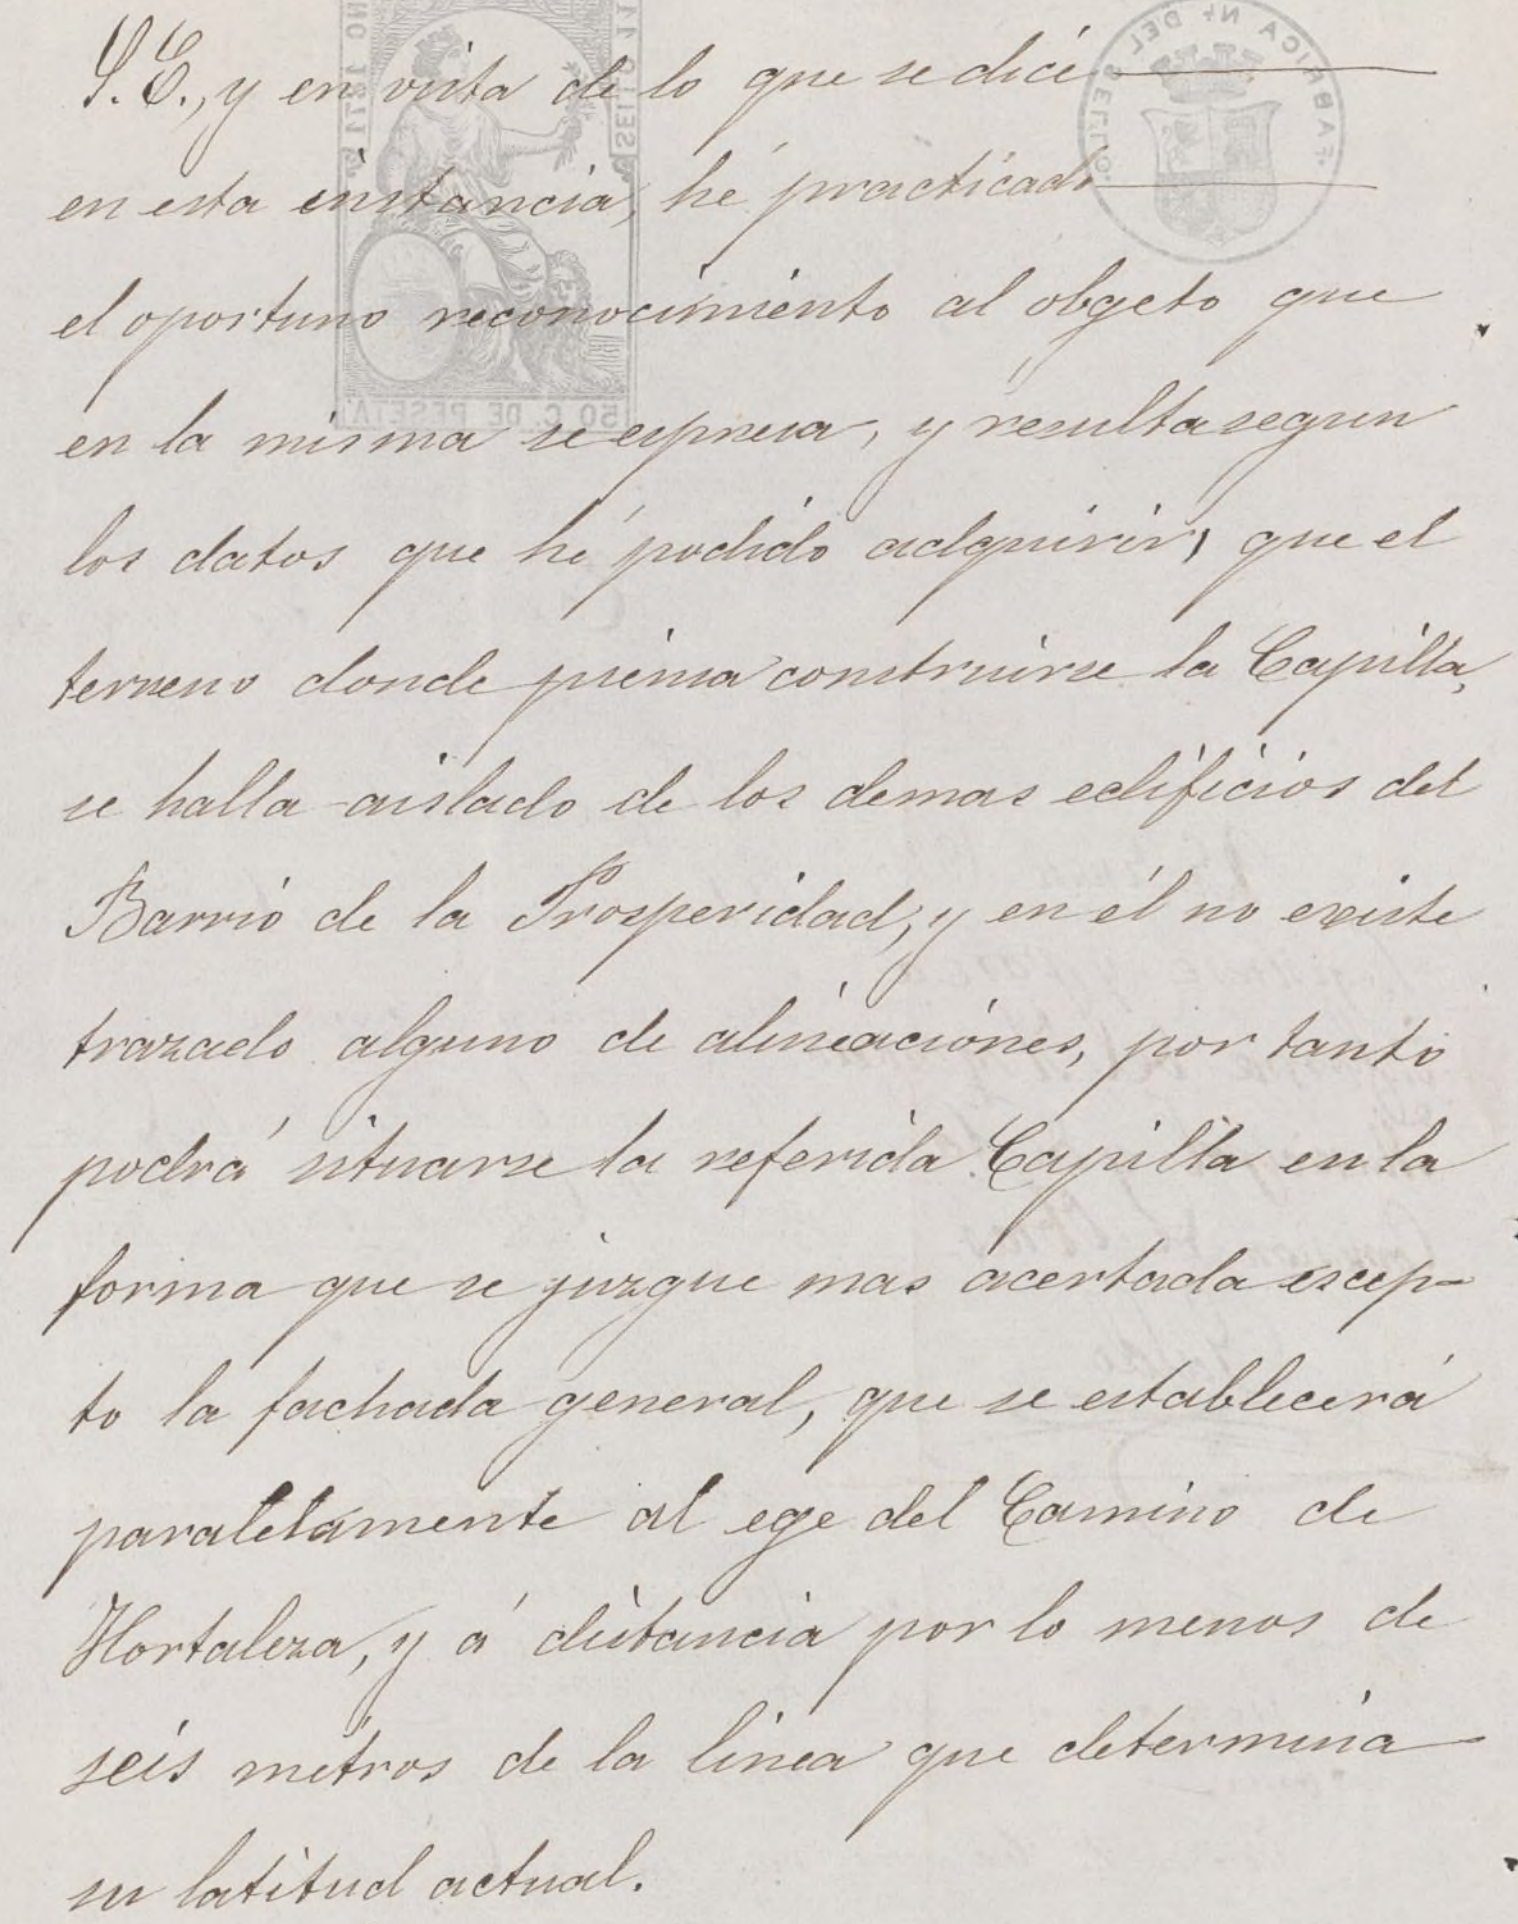 S. E., y en vista de lo que se dice
en esta instancia, hé practicado
el oportuno reconocimiento al obgeto que
en la misma se espresa, y resulta segun
los datos que hé podido adquirir, que el
terreno donde piensa construirse la Capilla,
se halla aislado de los demas edificios del
Barrio de la Prosperidad, y en él no existe
trazado alguno de alineaciónes, por tanto
podrá situarse la referida Capilla en la
forma que se juzgue mas acertada escep-
to la fachada general, que se establecerá
paralelamente al ege del Camino de
Hortaleza, y á distancia por lo menos de
seis metros de la linea que determina
su latitud actual.
50 C. DE PESETA
FABRICA Nl. DEL SELLO